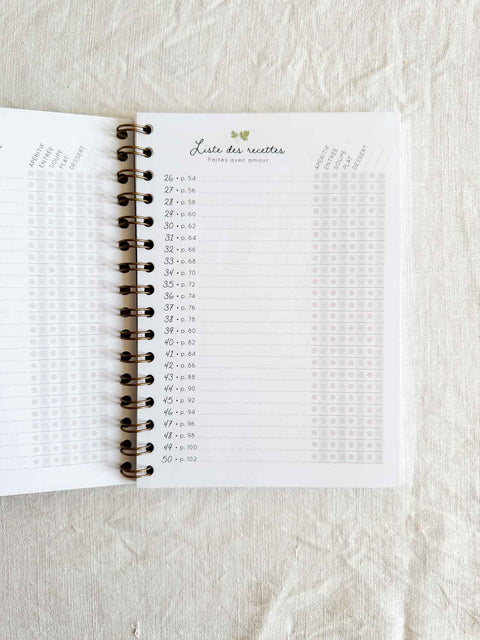 APÉRITIF
ENTRÉE
SOUPE
PLAT
DESSERT
Liste des recettes
Faites avec amour
APÉRITIF
ENTRÉE
SOUPE
PLAT
DESSERT
26 • p. 54
27 • p. 56
28 • p. 58
29 • p. 60
30 • p. 62
31 • p. 64
32 • p. 66
33 • p. 68
34 • p. 70
35 • p. 72
36 • p. 74
37 • p. 76
38 • p. 78
39 • p. 80
40 • p. 82
41 • p. 84
42 • p. 86
43 • p. 88
44 • p. 90
45 • p. 92
46 • p. 94
47 • p. 96
48 • p. 98
49 • p. 100
50 • p. 102